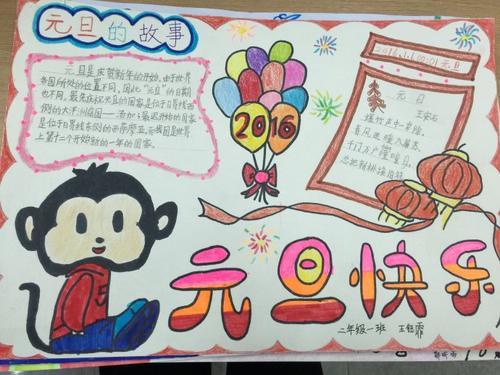 元旦的故事
元旦是庆贺新年的开始,由于世界
各国所处的位置不同,因此“元旦”的日期
也不同,最先庆祝元旦的国家是位于日界线西
侧的大洋洲岛国——汤加,最迟开始的国家
是位于日界线东侧的西萨摩亚,而我国是世界
上第十二个开始新的一年的国家。
2016
2016.1.1 00:01 元旦
元日
王安石
爆竹声中一岁除,
春风送暖入屠苏。
千门万户曈曈日,
总把新桃换旧符。
元旦快乐
二年级一班 王钰霏